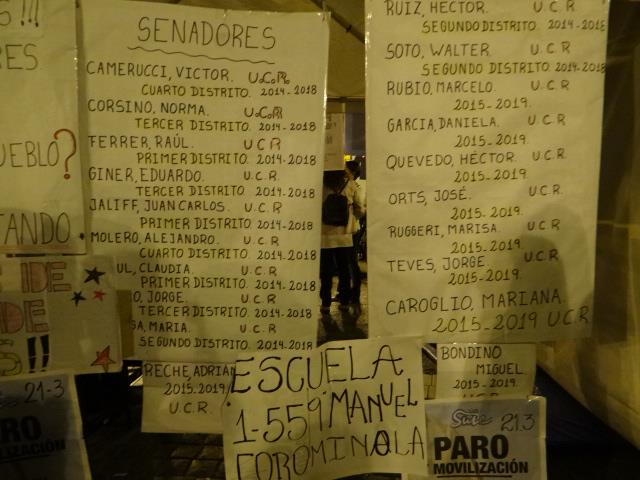 !!!
RES
UEBLO?
TANDO
SENADORES
CAMERUCCI, VICTOR. U.C.R
CUARTO DISTRITO. 2014-2018
CORSINO, NORMA. U.C.R
TERCER DISTRITO. 2014-2018
FERRER, RAÚL. UCR
PRIMER DISTRITO. 2014-2018
GINER, EDUARDO. U.C.R
TERCER DISTRITO 2014-2018
JALIFF, JUAN CARLOS. U.C.R
PRIMER DISTRITO 2014-2018
MOLERO, ALEJANDRO. U.C.R
CUARTO DISTRITO 2014-2018
UL, CLAUDIA. U.C.R
PRIMER DISTRITO 2014-2018
O, JORGE. U.C.R
TERCER DISTRITO. 2014-2018
A, MARIA. U.C.R
SEGUNDO DISTRITO. 2014-2018
RECHE, ADRIAN
2015-2019
U.C.R.
RUIZ, HÉCTOR. U.C.R
SEGUNDO DISTRITO 2014-2018
SOTO, WALTER. U.C.R
SEGUNDO DISTRITO 2014-2018
RUBIO, MARCELO. U.C.R
2015-2019.
GARCIA, DANIELA. U.C.R
2015-2019.
QUEVEDO, HÉCTOR. U.C.R
2015-2019.
ORTS, JOSÉ. U.C.R
2015-2019.
RUGGERI, MARISA. U.C.R
2015-2019.
TEVES, JORGE. U.C.R
2015-2019.
CAROGLIO, MARIANA.
2015-2019 U.C.R
BONDINO
MIGUEL
2015-2019
ESCUELA
1-559 MANUEL
COROMINOLA
DE
DE
S!!
Sute 21-3
PARO
MOVILIZACIÓN
Sute 21.3
PARO
MOVILIZACIÓN